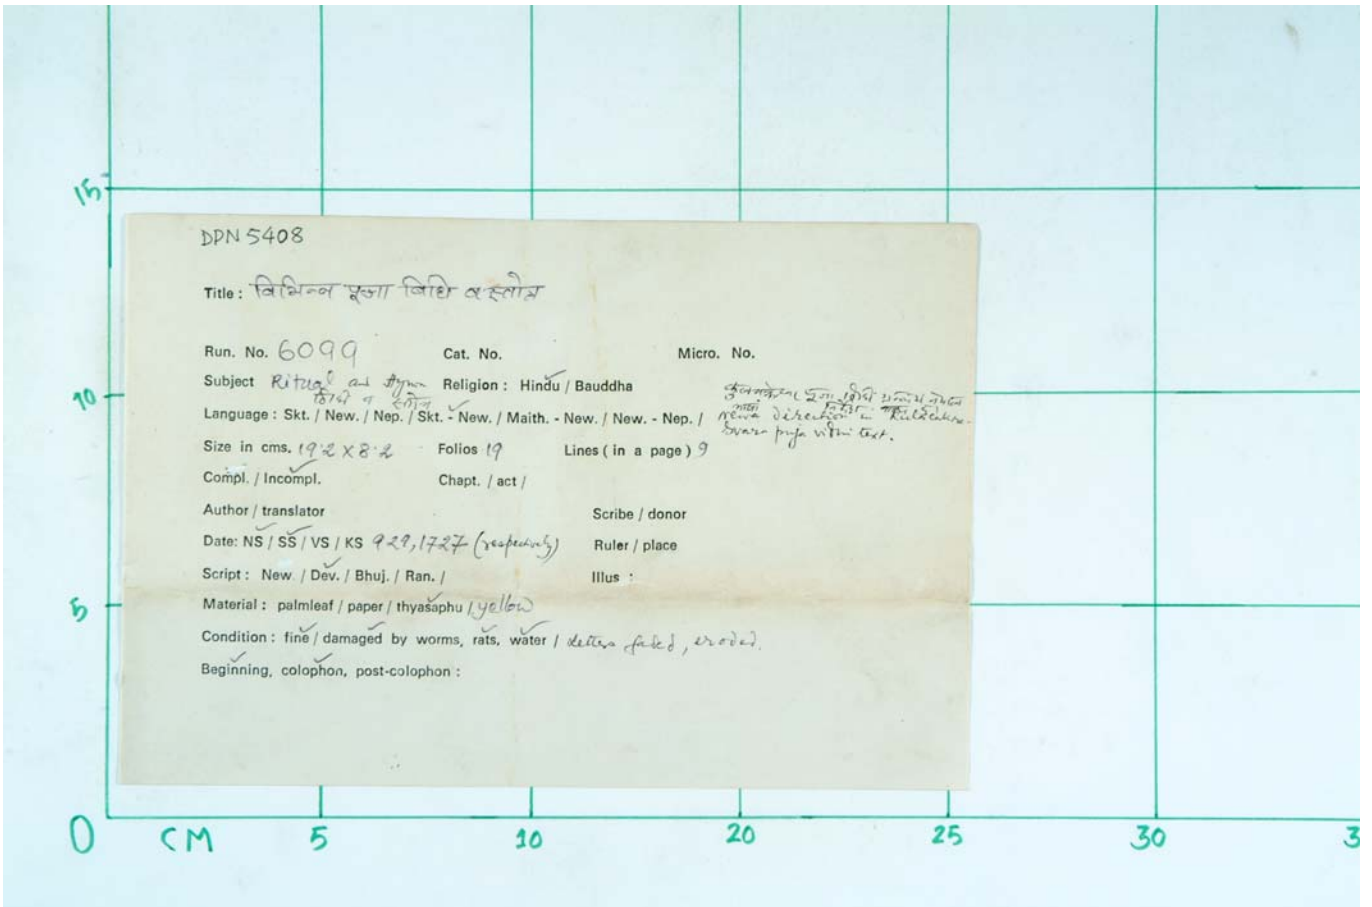 DPN 5408
Title : विभिन्न पूजा विधि व स्तोत्र
Run. No. 6099 Cat. No. Micro. No.
Subject Ritual and Hymn Religion : Hindu / Bauddha
विधि व स्तोत्र
Language : Skt. / New. / Nep. / Skt. - New. / Maith. - New. / New. - Nep. / newa direction in
svara puja vidhi text.
Size in cms. 19.2 X 8.2 Folios 19 Lines ( in a page ) 9
Compl. / Incompl. Chapt. / act /
Author / translator Scribe / donor
Date: NS / SS / VS / KS 929, 1727 (respectively) Ruler / place
Script : New. / Dev. / Bhuj. / Ran. / Illus :
Material : palmleaf / paper / thyasaphu / yellow
Condition : fine / damaged by worms, rats, water / letters faded, eroded.
Beginning, colophon, post-colophon :
15
10
5
0 CM 5 10 20 25 30 3